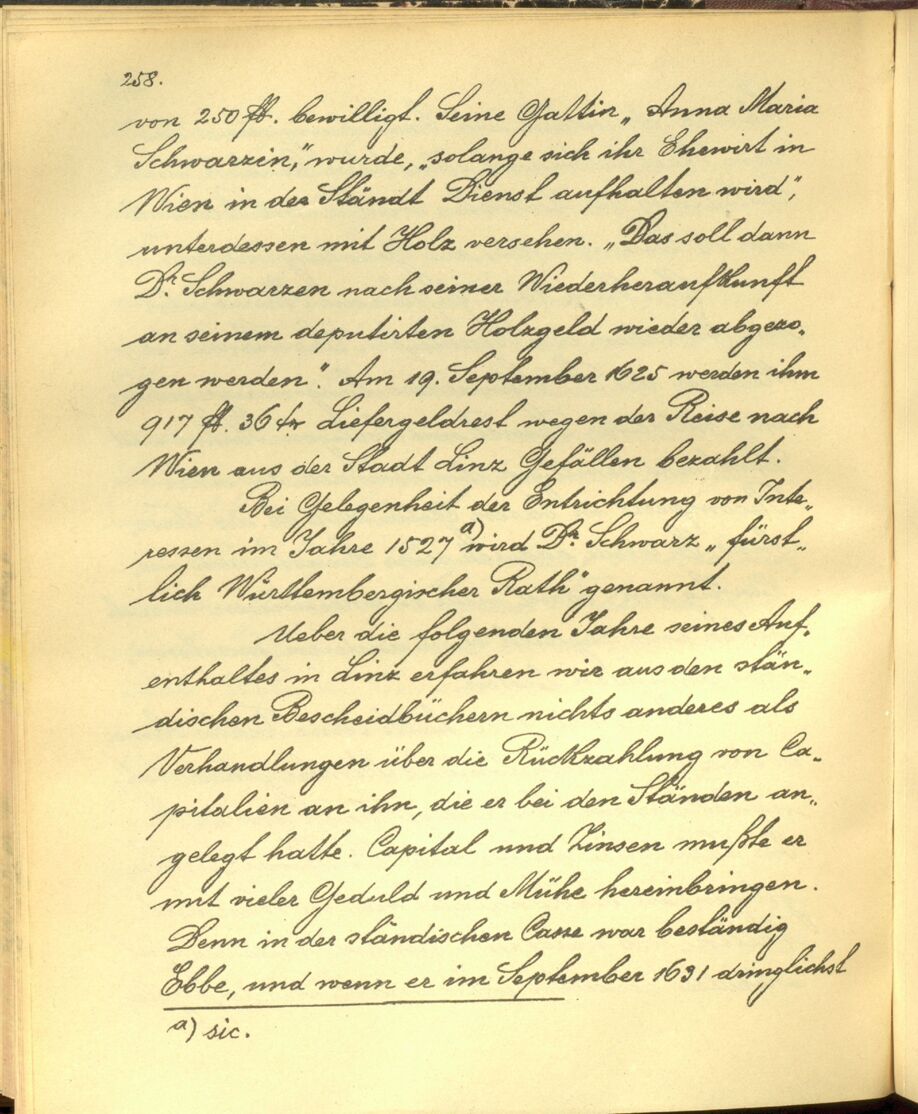 258.
von 250 fl. bewilligt. Seine Gattin „Anna Maria
Schwarzin", wurde, „solange sich ihr Ehewirt in
Wien in der Ständt Dienst aufhalten wird",
unterdessen mit Holz versehen. „Das soll dann
Dr. Schwarzen nach seiner Wiederheraufkunft
an seinem deputirten Holzgeld wieder abgezo„
gen werden". Am 19. September 1625 werden ihm
917 fl. 36 kr Liefergeldrest wegen der Reise nach
Wien aus der Stadt Linz Gefällen bezahlt.
Bei Gelegenheit der Entrichtung von Inte„
ressen im Jahre 1527 a) wird Dr. Schwarz „fürst„
lich Württembergischer Rath" genannt.
Ueber die folgenden Jahre seines Auf„
enthaltes in Linz erfahren wir aus den stän„
dischen Bescheidbüchern nichts anderes als
Verhandlungen über die Rückzahlung von Ca„
pitalien an ihn, die er bei den Ständen an„
gelegt hatte. Capital und Zinsen mußte er
mit vieler Geduld und Mühe hereinbringen.
Denn in der ständischen Casse war beständig
Ebbe, und wenn er im September 1631 dringlichst
a) sic.